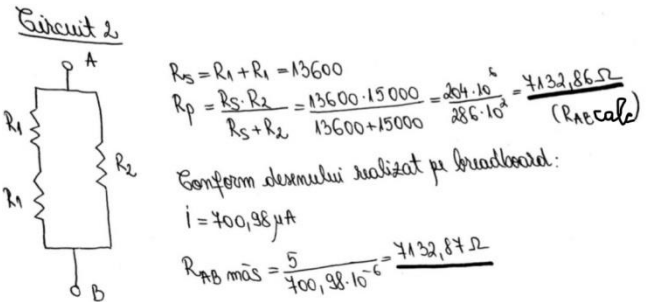 Circuit 2
A
R1
R1
R2
B
Rs = R1 + R1 = 13600
Rp = Rs·R2 / Rs+R2 = 13600·15000 / 13600+15000 = 204·10^6 / 286·10^2 = 7132,86 Ω
(RAB calc)
Conform desenului realizat pe breadboard:
i = 700,98 μA
RAB măs = 5 / 700,98·10^-6 = 7132,87 Ω